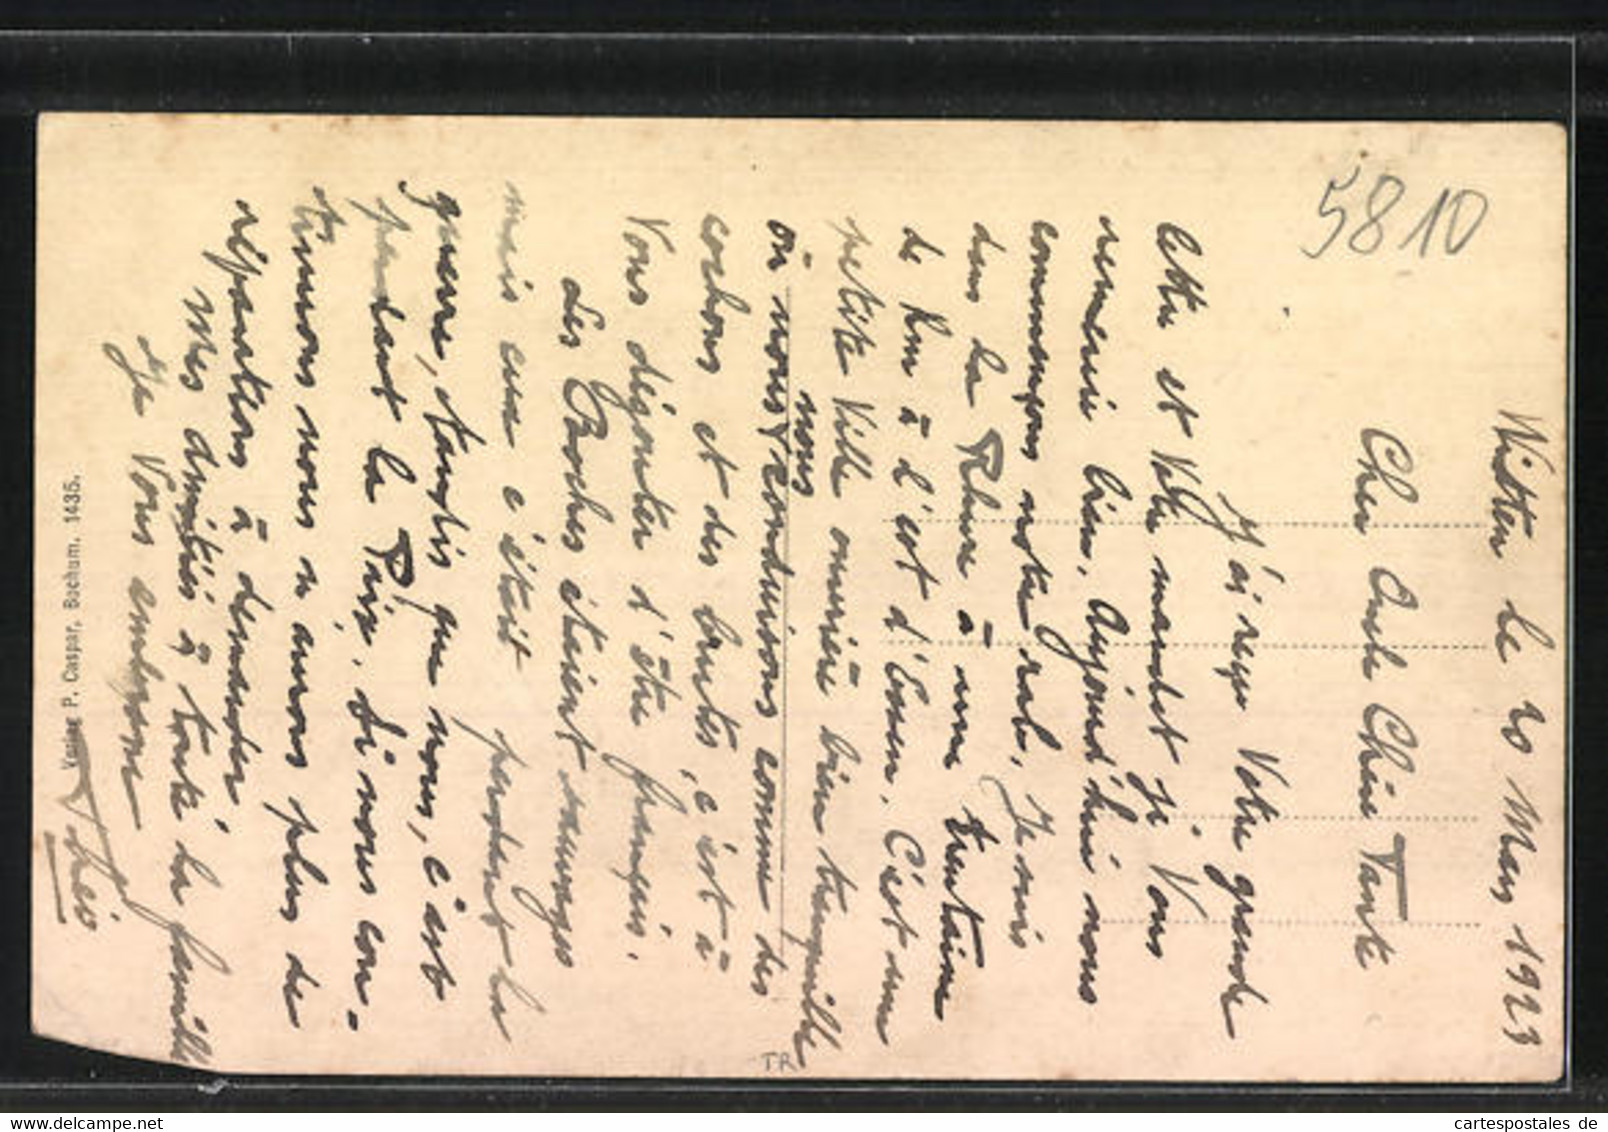 Witten le 20 Mars 1923
Cher Oncle Chère Tante
J'ai reçu Votre grande
lettre et Votre mandat je Vous
remercie bien, Aujourd'hui nous
commençons notre rab. Je suis
dans la Rhur à une trentaine
de Km à l'est d'Essen. C'est une
petite Ville ouvrière bien tranquille
où nous nous conduisons comme des
cochons et des brutes, c'est à
Vous dégouter d'être français.
Les Boches étaient sauvages
mais eux c'était pendant la
guerre, tandis que nous, c'est
pendant la Paix, si nous con-
tinuons nous n'aurons plus de
réparations à demander.
Mes amitiés à toute la famille
Je Vous embrasse
5810
TR
Verlag P. Caspar, Bochum. 1435.
www.delcampe.net
cartespostales de